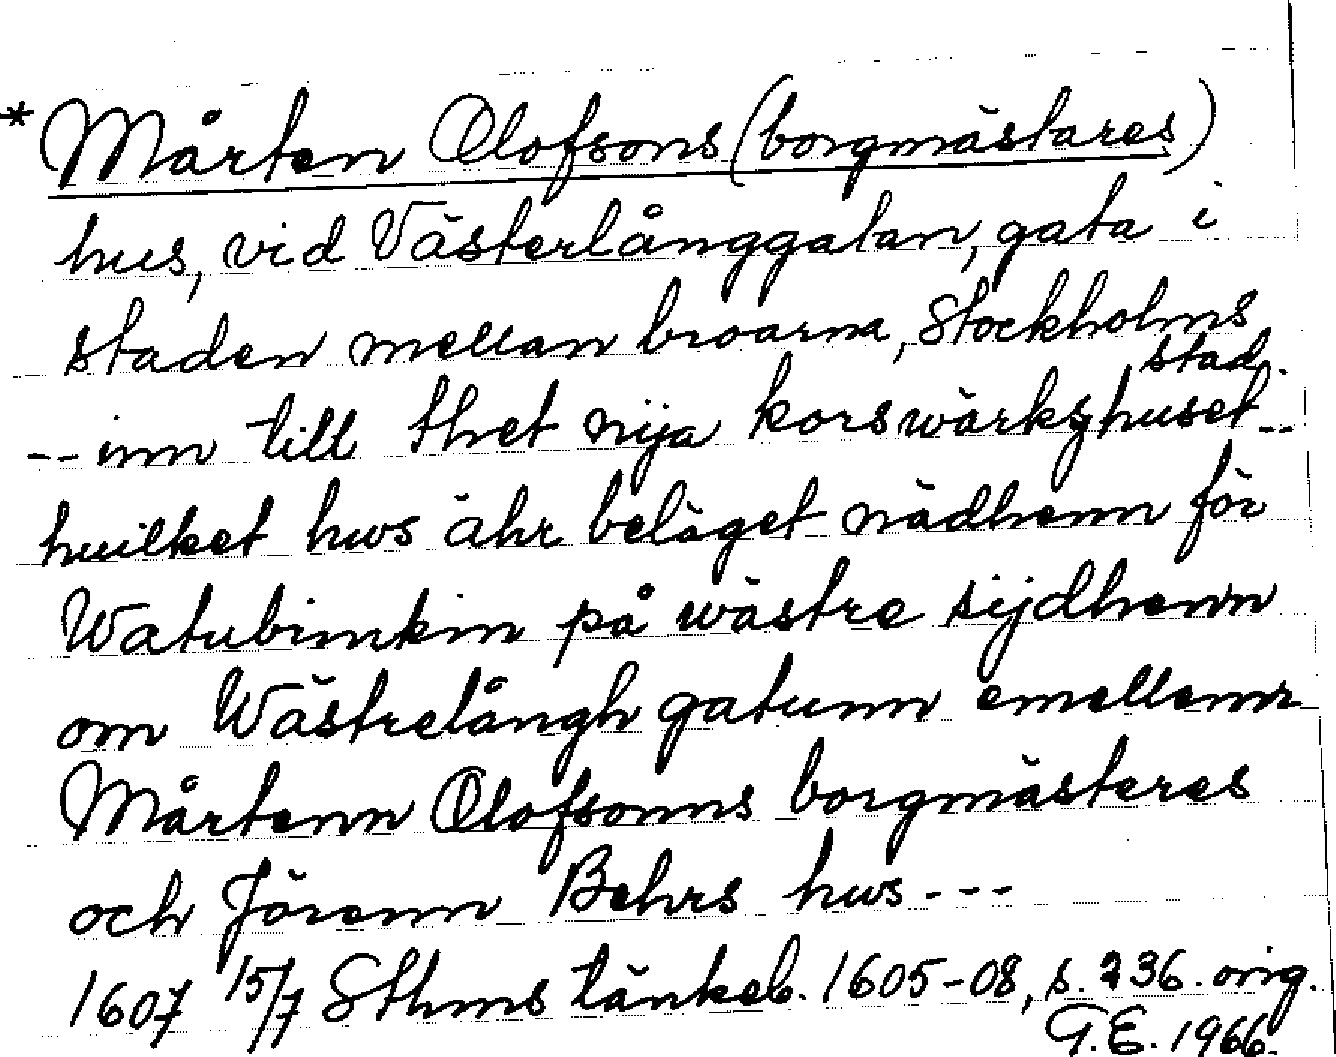 * Mårten Olofsons (borgmästares)
hus, vid Västerlånggatan, gata i
staden mellan broarna, Stockholms
stad.
-- inn till thet nija korswärkzhuset --
huilket hws ähr beläget nädhenn för
Watubinkin på wästre sijdhenn
om Wästrelångh gatunn emellenn
Mårtenn Olofsonns borgmästeres
och Jörenn Behrs hws ---
1607 15/7 Sthms tänkeb. 1605-08, s. 236. orig.
G.E. 1966.